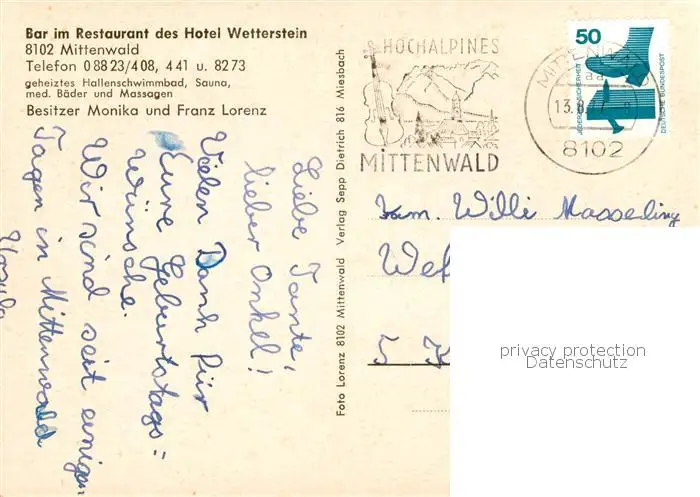 Bar im Restaurant des Hotel Wetterstein
8102 Mittenwald
Telefon 0 88 23/4 08, 4 41 u. 82 73
geheiztes Hallenschwimmbad, Sauna,
med. Bäder und Massagen
Besitzer Monika und Franz Lorenz
Liebe Tante,
lieber Onkel!
Vielen Dank für
Eure Geburtstags=
wünsche.
Wir sind seit einigen
Tagen in Mittenwald
Ursula
Foto Lorenz 8102 Mittenwald Verlag Sepp Dietrich 816 Miesbach
HOCHALPINES
MITTENWALD
MITTENWALD
13.8.
8102
50
JEDERZEIT SICHERHEIT
DEUTSCHE BUNDESPOST
Fam. Willi Masseling
5 K
privacy protection
Datenschutz